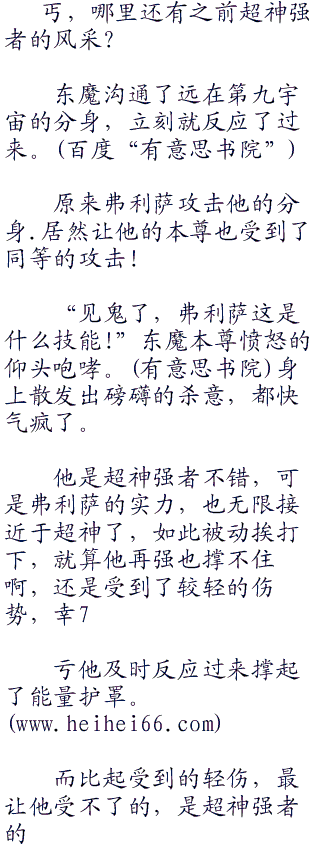 丐，哪里还有之前超神强
者的风采？
东魔沟通了远在第九宇
宙的分身，立刻就反应了过
来。(百度“有意思书院”)
原来弗利萨攻击他的分
身.居然让他的本尊也受到了
同等的攻击！
“见鬼了，弗利萨这是
什么技能!”东魔本尊愤怒的
仰头咆哮。(有意思书院)身
上散发出磅礴的杀意，都快
气疯了。
他是超神强者不错，可
是弗利萨的实力，也无限接
近于超神了，如此被动挨打
下，就算他再强也撑不住
啊，还是受到了较轻的伤
势，幸7
亏他及时反应过来撑起
了能量护罩。
(www.heihei66.com)
而比起受到的轻伤，最
让他受不了的，是超神强者
的